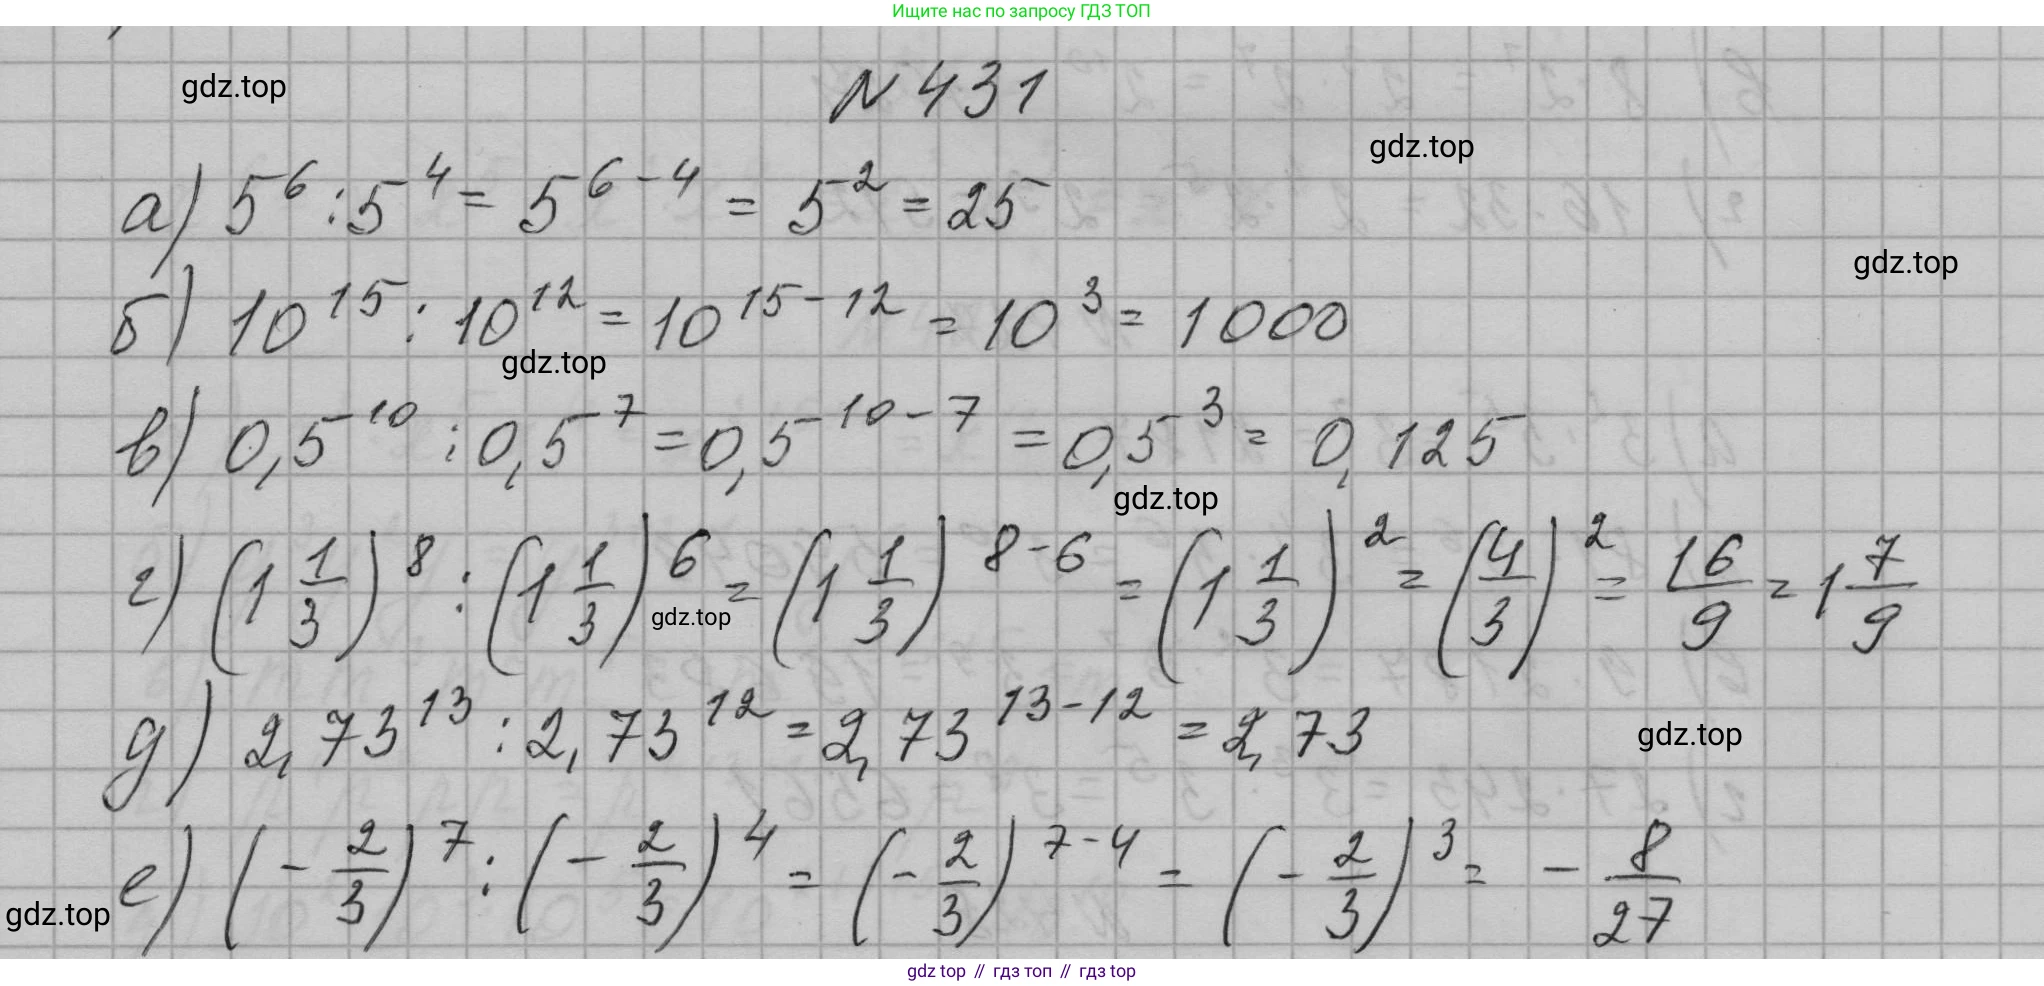 Ищите нас по запросу ГДЗ ТОП
gdz.top
N 431
gdz.top
а) 5^6 : 5^4 = 5^{6-4} = 5^2 = 25
gdz.top
б) 10^{15} : 10^{12} = 10^{15-12} = 10^3 = 1000
gdz.top
в) 0,5^{10} : 0,5^7 = 0,5^{10-7} = 0,5^3 = 0,125
gdz.top
г) (1 1/3)^8 : (1 1/3)^6 = (1 1/3)^{8-6} = (1 1/3)^2 = (4/3)^2 = 16/9 = 1 7/9
gdz.top
д) 2,73^{13} : 2,73^{12} = 2,73^{13-12} = 2,73
gdz.top
е) (-2/3)^7 : (-2/3)^4 = (-2/3)^{7-4} = (-2/3)^3 = -8/27
gdz.top
gdz top // гдз топ // gdz top